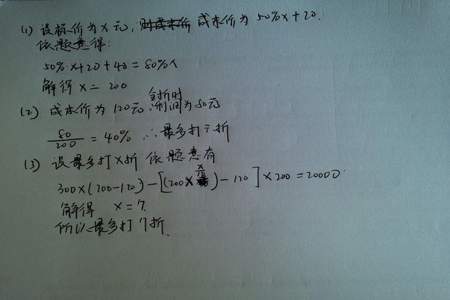 (1) 设标价为x元, 成本价为 50%x+20.
依题意得:
50%x+20+40=80%x
解得 x=200
(2) 成本价为120元 全折时利润为80元
80/200=40% ∴最多打三折
(3) 设最多打x折 依题意有
300×(200-120)-[(200×x/10)-120]×200=20000
解得 x=7.
所以最多打7折.